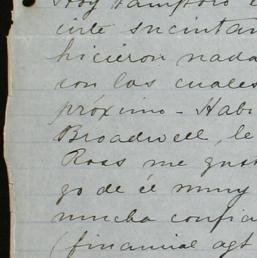 Hoy tampoco
irte sucintam
hicieron nada
con los cuales
próximo - Habl
Broadwell, le
Ross me gust
go de él muy
mucha confia
(financial agt